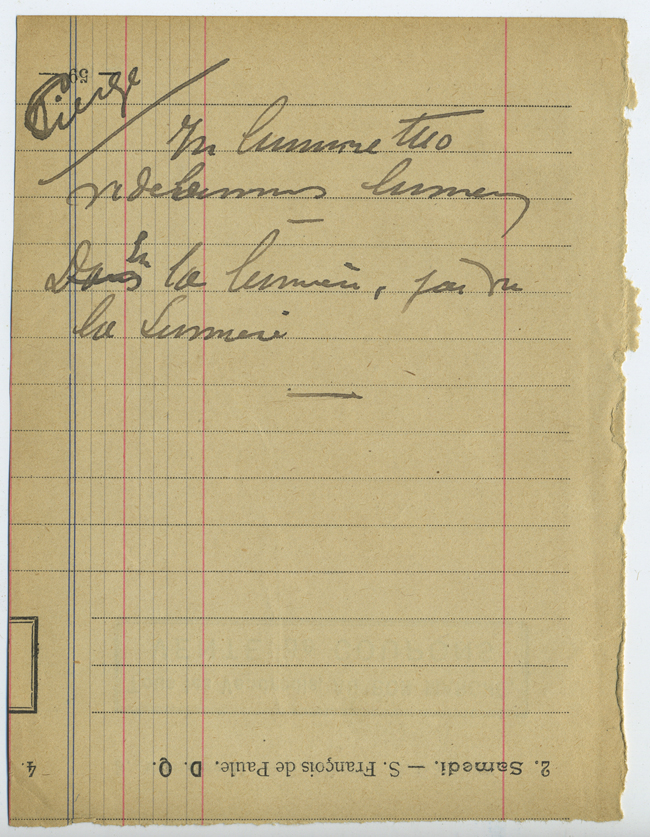 — 59 —
Cierge
In lumine tuo
videbimus lumen
—
En
Dans la lumière, j'ai vu
la Lumière
—
2. Samedi. — S. François de Paule. D. Q.
4.